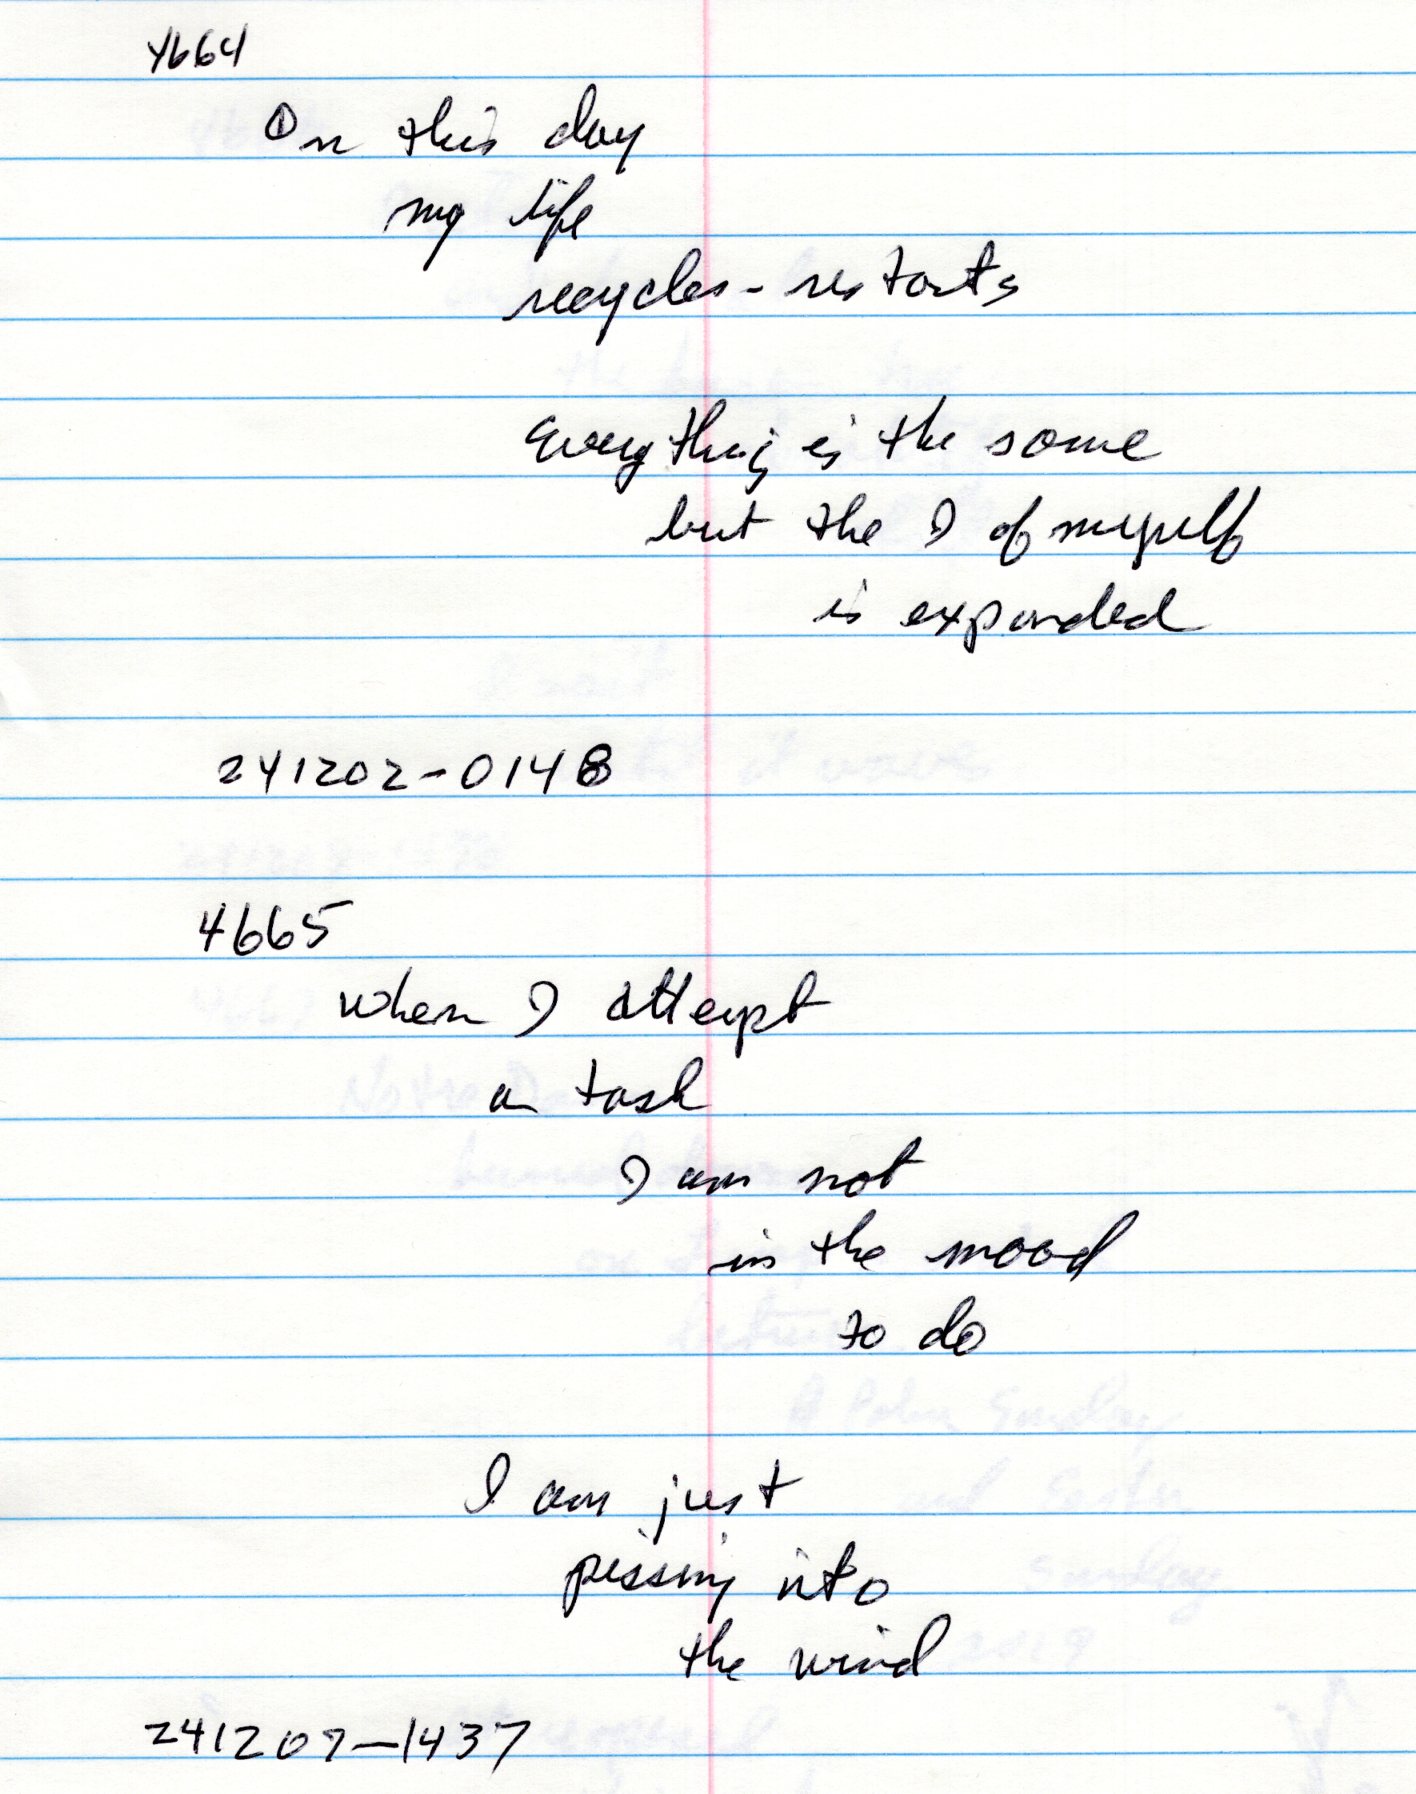 4664
On this day
my life
recycles-restarts
Everything is the same
but the I of myself
is expanded
241202-0148
4665
When I attempt
a task
I am not
in the mood
to do
I am just
pissing into
the wind
241207-1437